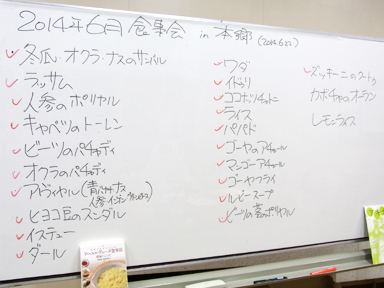 2014年6月 食事会 in 本郷 (2014.6.22)
冬瓜・オクラ・ナスのサンバル
ラッサム
人参のポリヤル
キャベツのトーレン
ビーツのパチャディ
オクラのパチャディ
アヴィヤル(青バナナ・ナス
ヒヨコ豆のスンダル
イステュー
ダール
ワダ
イドゥリ
ココナッツチャトニ
ライス
パパド
ゴーヤのアチャール
マンゴーアチャール
ゴーヤフライ
ルビースープ
ビーツの茎のポリヤル
ズッキーニのクートゥ
カボチャのオーラン
レモンライス